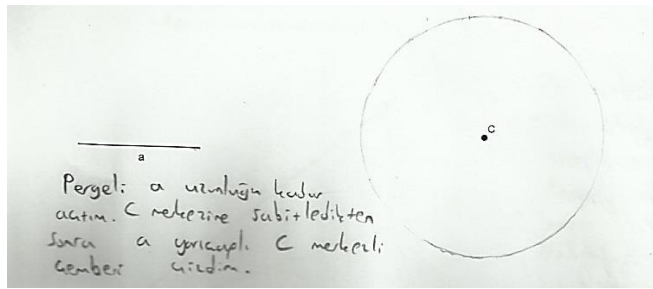 C
a
Pergeli a uzunluğu kadar
açtım. C merkezine sabitledikten
sonra a yarıçaplı C merkezli
çemberi çizdim.